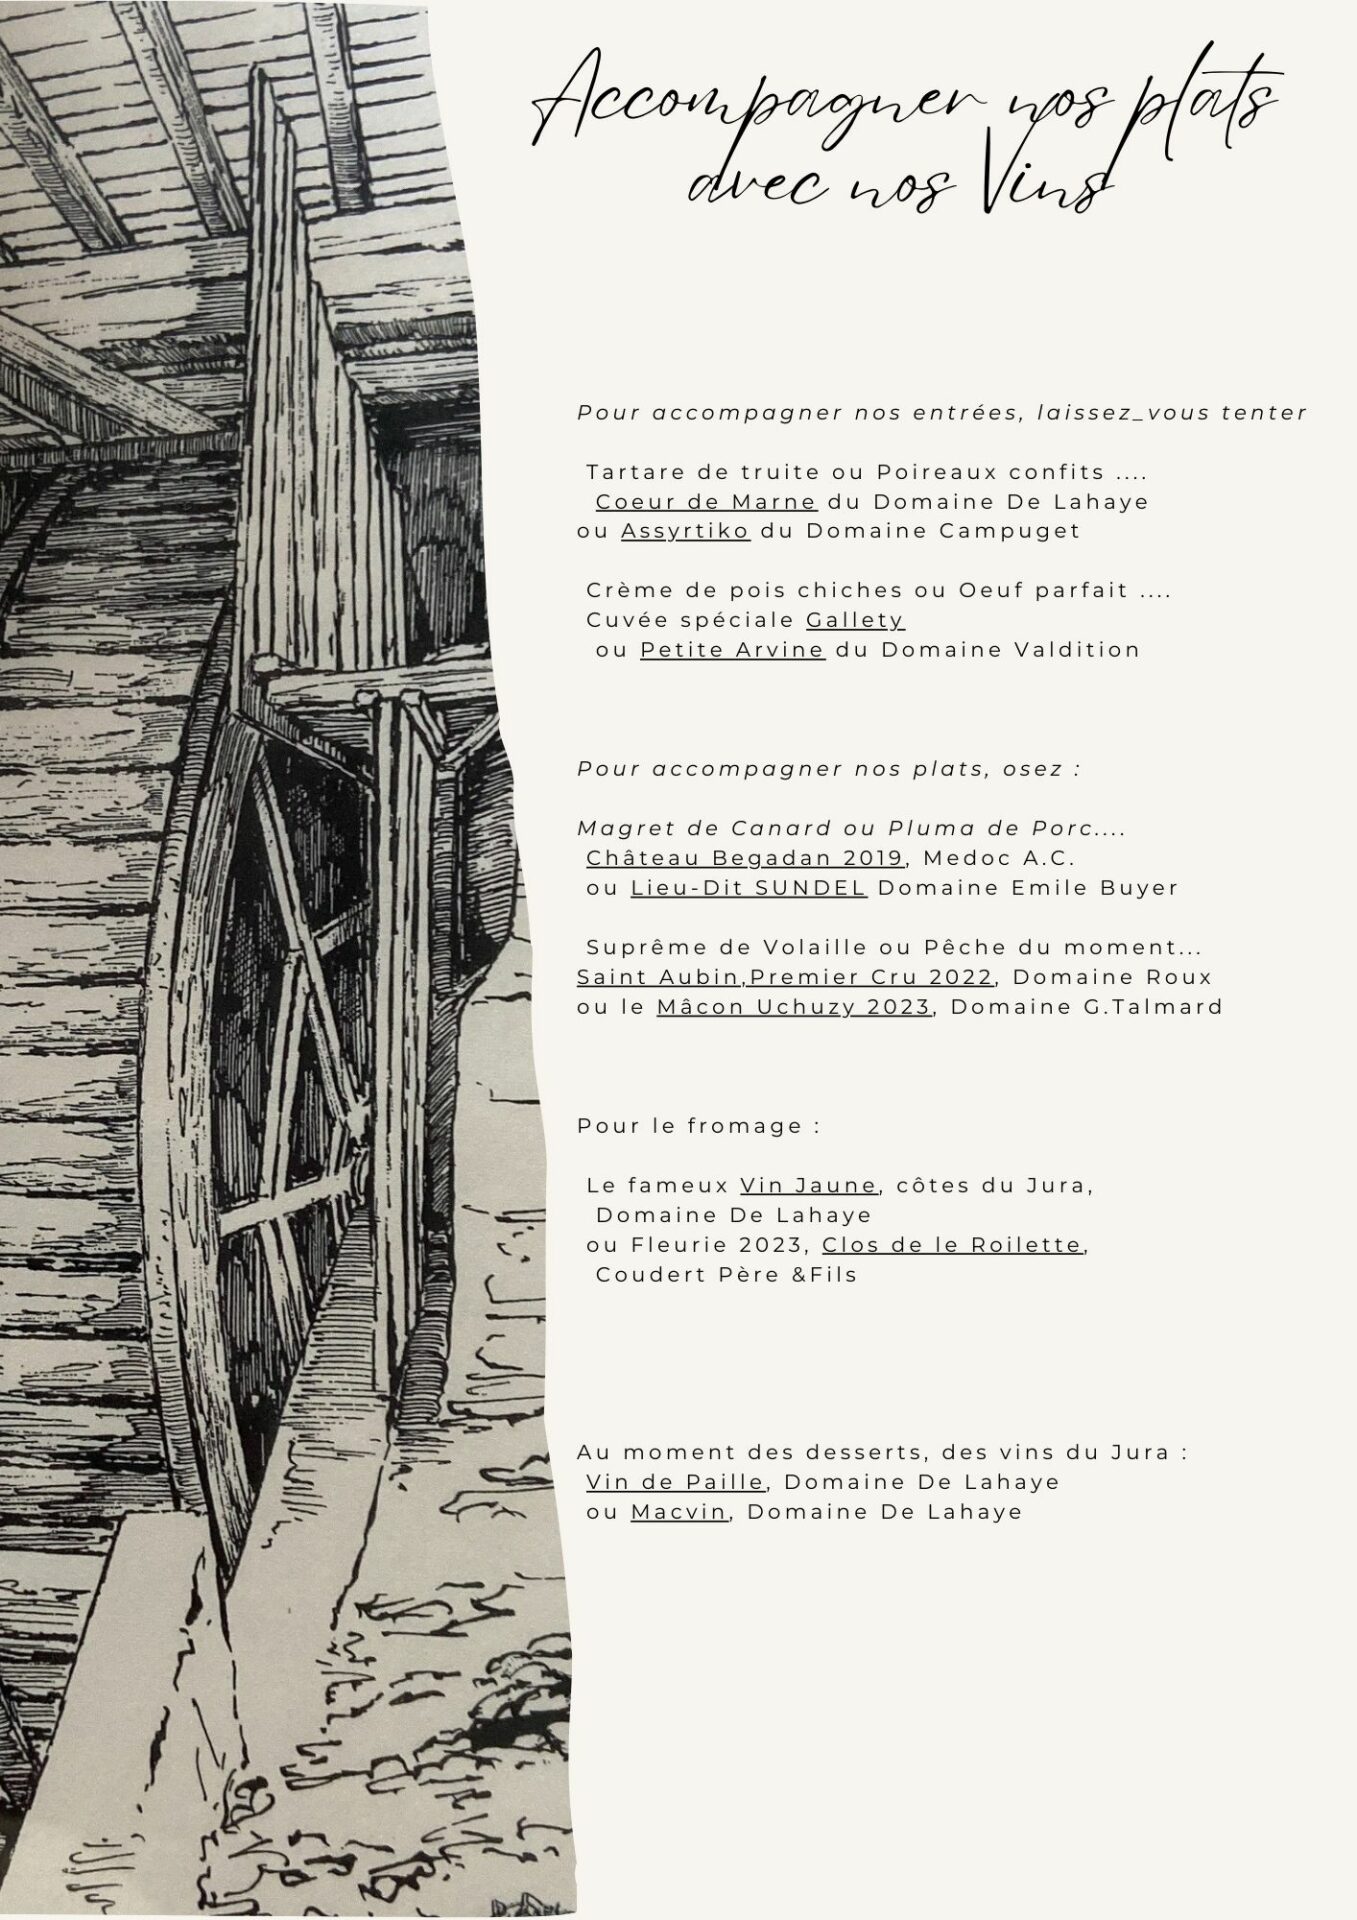 Accompagner nos plats
avec nos Vins
Pour accompagner nos entrées, laissez_vous tenter
Tartare de truite ou Poireaux confits ....
Coeur de Marne du Domaine De Lahaye
ou Assyrtiko du Domaine Campuget
Crème de pois chiches ou Oeuf parfait ....
Cuvée spéciale Gallety
ou Petite Arvine du Domaine Valdition
Pour accompagner nos plats, osez :
Magret de Canard ou Pluma de Porc....
Château Begadan 2019, Medoc A.C.
ou Lieu-Dit SUNDEL Domaine Emile Buyer
Suprême de Volaille ou Pêche du moment...
Saint Aubin,Premier Cru 2022, Domaine Roux
ou le Mâcon Uchuzy 2023, Domaine G.Talmard
Pour le fromage :
Le fameux Vin Jaune, côtes du Jura,
Domaine De Lahaye
ou Fleurie 2023, Clos de le Roilette,
Coudert Père &Fils
Au moment des desserts, des vins du Jura :
Vin de Paille, Domaine De Lahaye
ou Macvin, Domaine De Lahaye